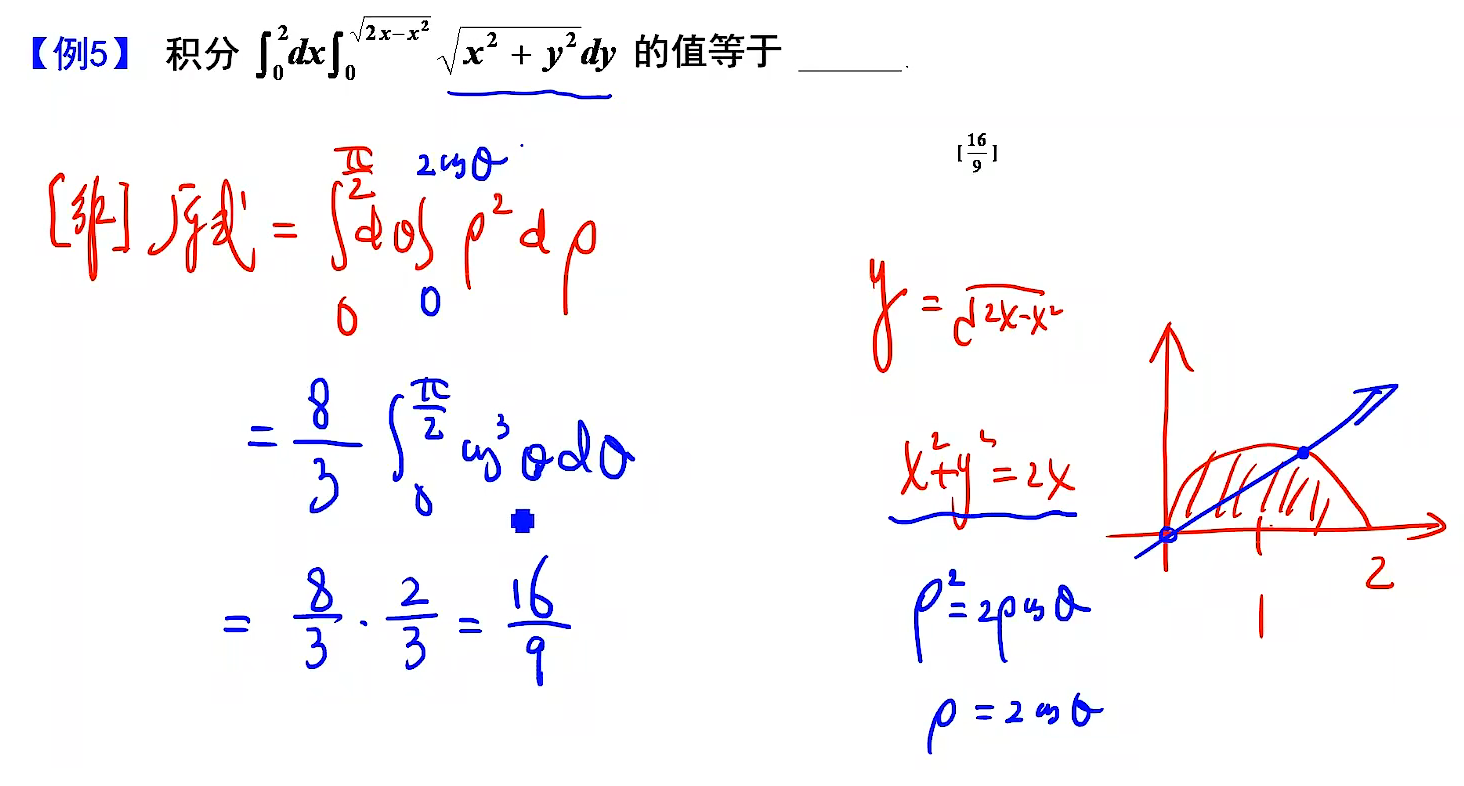 【例5】 积分 ∫₀²dx∫₀^√(2x−x²) √(x² + y²)dy 的值等于 ______.
[16/9]
[解] 原式 = ∫₀^(π/2) dθ ∫₀^(2cosθ) ρ² dρ
= 8/3 ∫₀^(π/2) cos³θdθ
= 8/3 · 2/3 = 16/9
y = √(2x-x²)
x²+y²=2x
ρ²=2ρcosθ
ρ=2cosθ
1
2